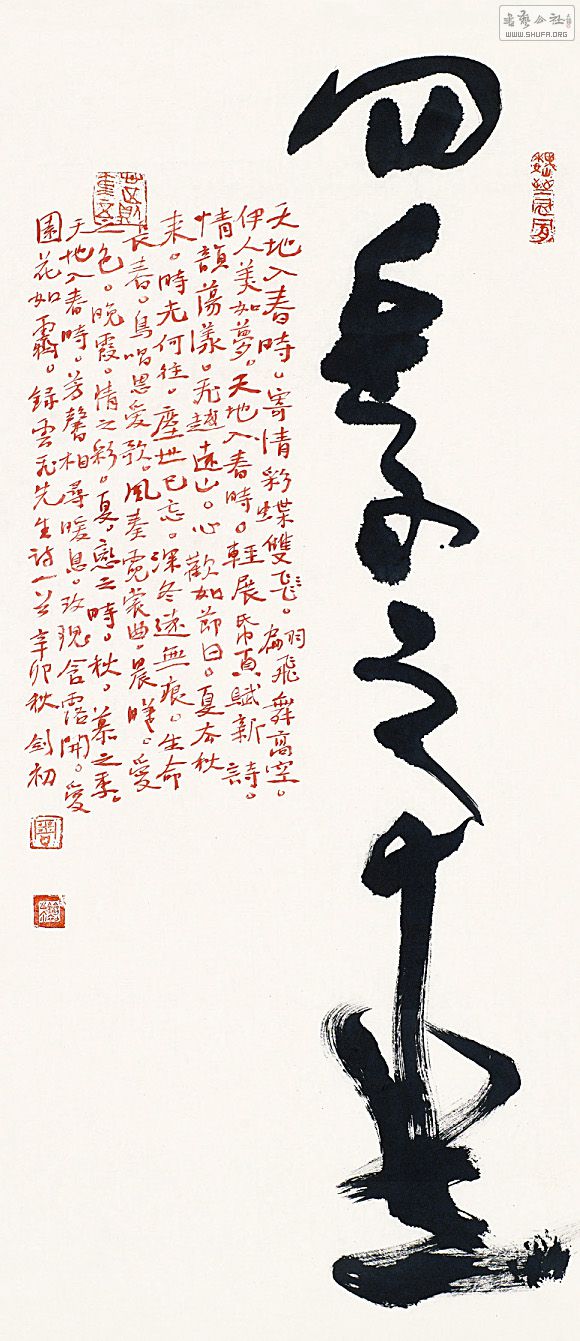 四季之
天地入春時。寄情彩蝶雙。翩飛舞高空。
伊人美如夢。天地入春時。輕展帋頁賦新詩。
情韻蕩漾。飛越遠山。心歡如節日。夏去秋
来。時光何往。塵世已忘。深冬遠無痕。生命
長春。鳥唱思愛歌。風奏霓裳曲。晨曦。愛
之色。晚霞。情之彩。夏。戀之時。秋。慕之季。
天地入春時。芳馨相尋暖息。玫瑰含露開。愛
園花如霽。録雲飛先生詩一首辛卯秋劍初
WWW.SHUFA.ORG